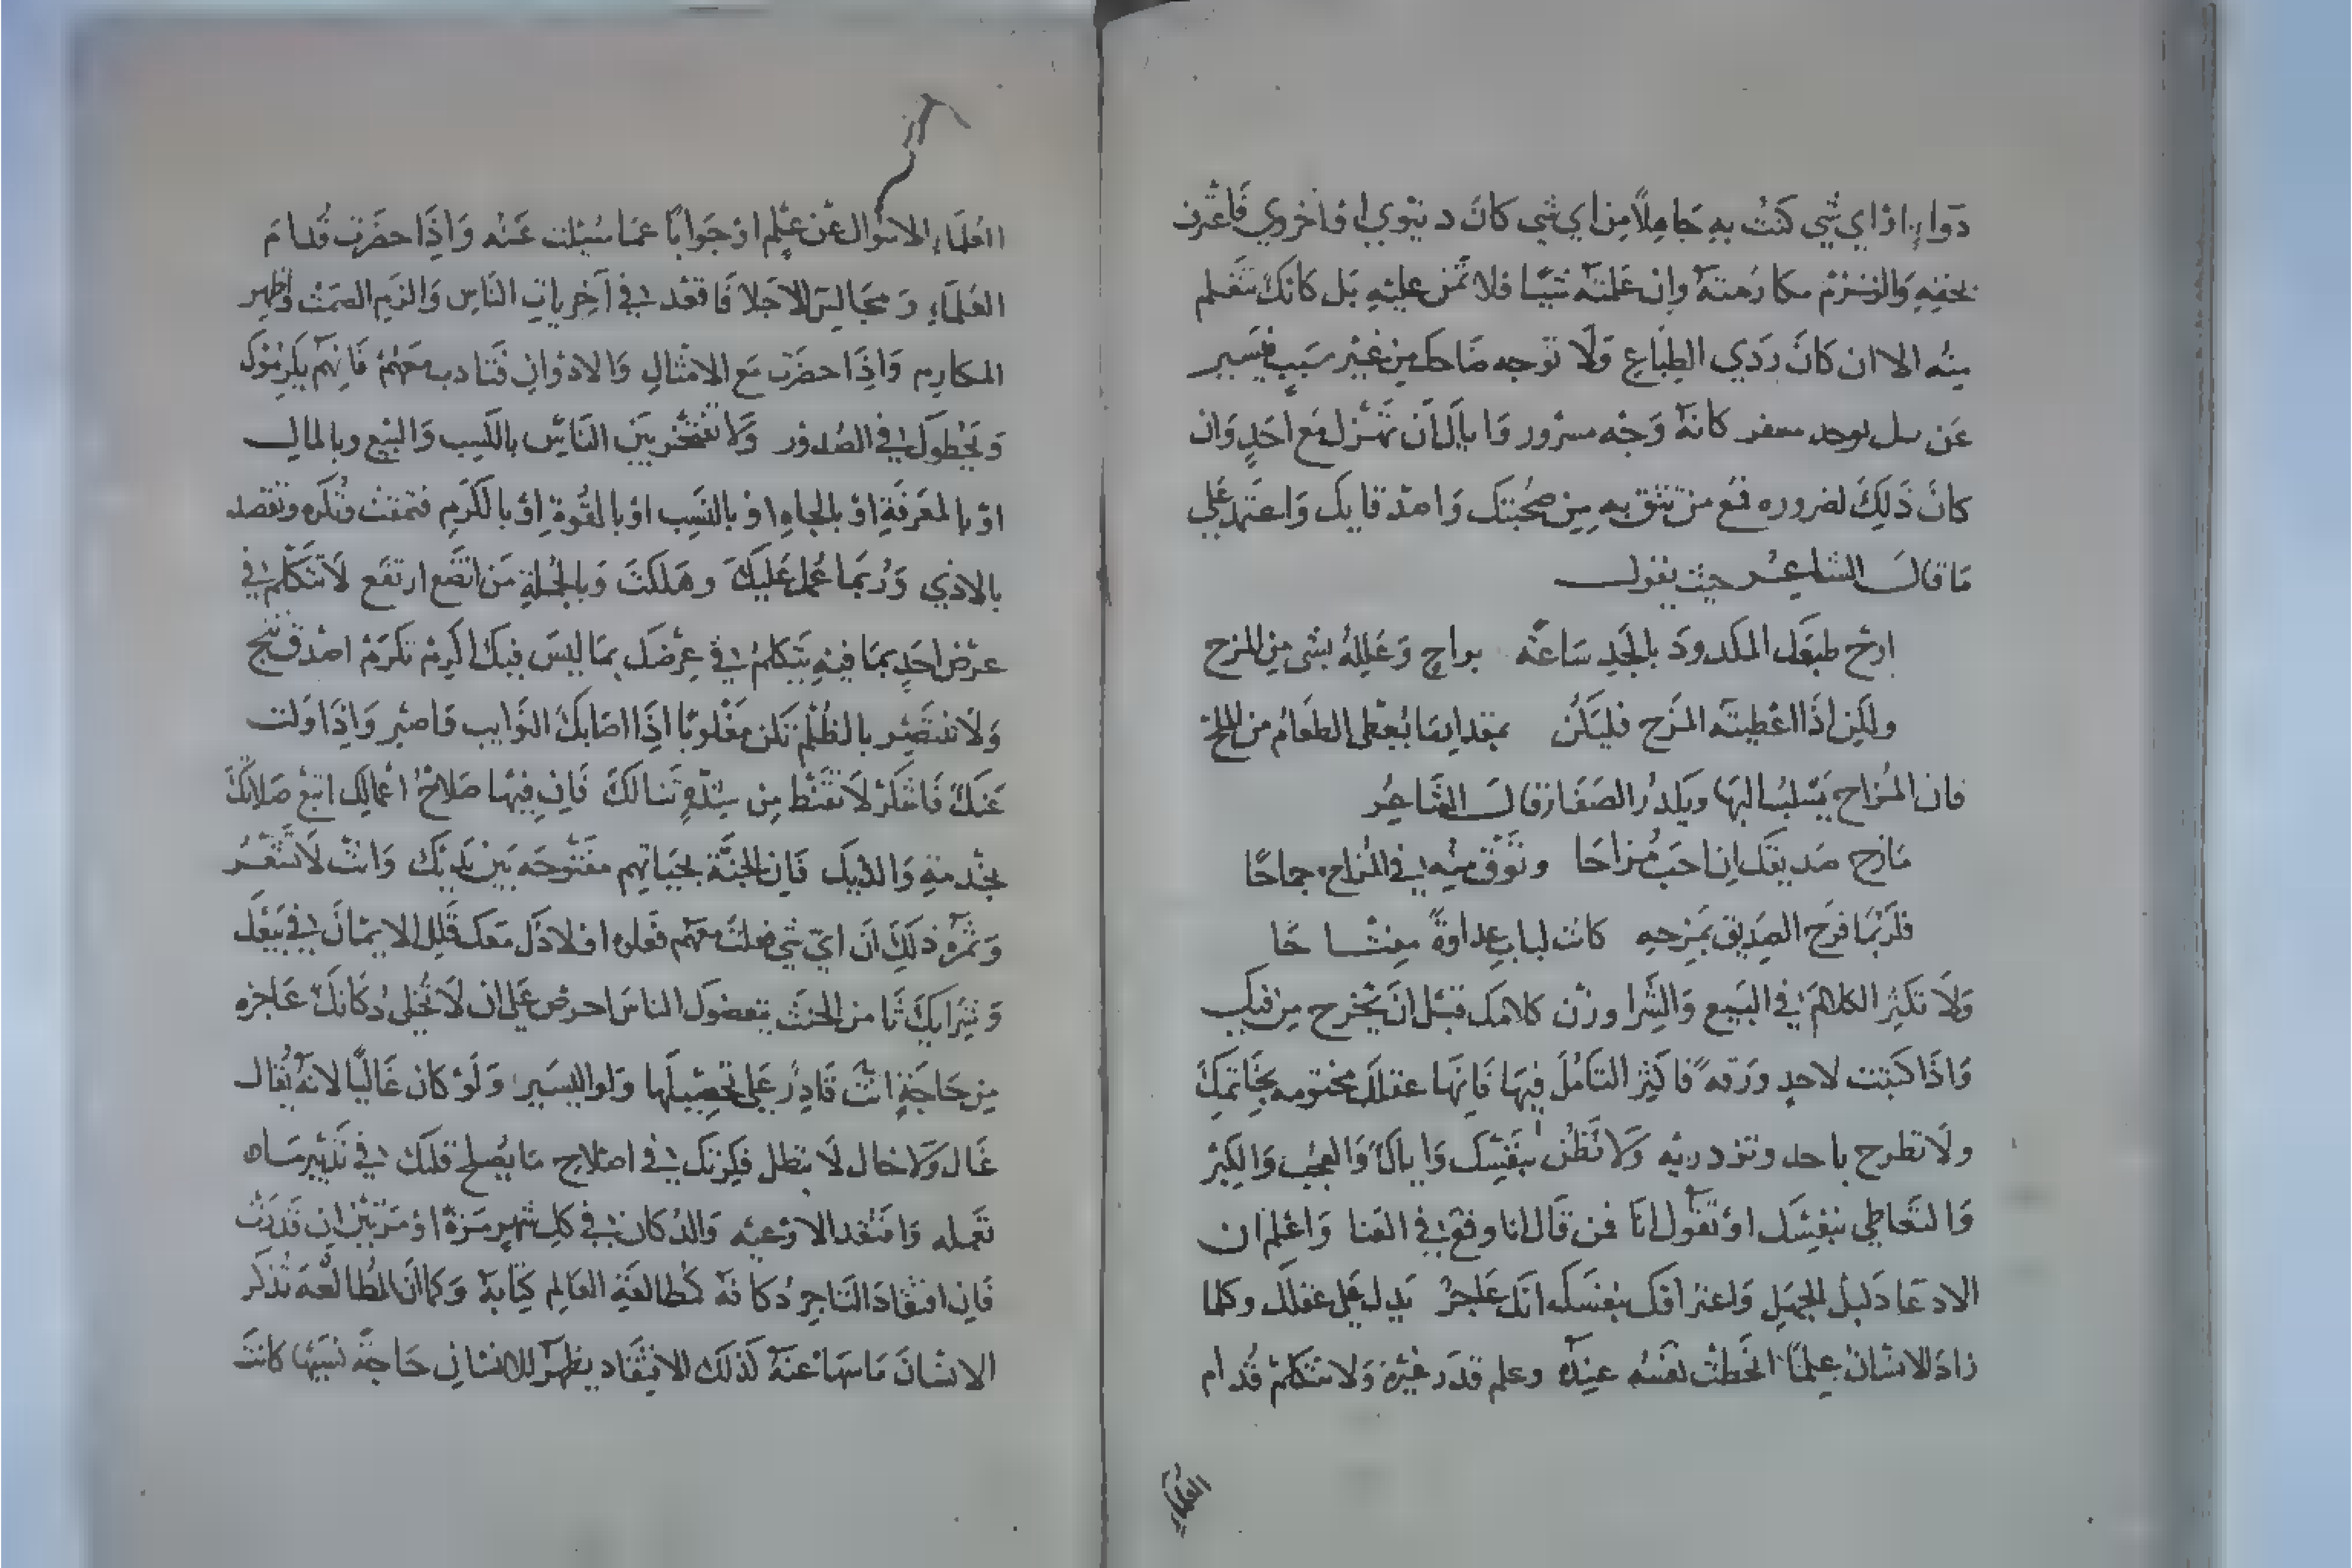 دَواءٍ اوْ اي شي كنتُ بهِ جَاهِلاً مِن اي شي كان دنيوي اوْ اخروي فَاعْترف
بحقهِ وَالتزم مكارمته وان علمته شيًا فلا تمن عليهِ بَل كانك تتعلم
منه الا ان كانَ رَدي الطِبَاع وَلَا توجه ضاحك مِن غير سَببٍ فيسير
عَن بوجه كانهُ وَجْه مسرُور وَاياكَ ان تهْزل مَع احَدٍ وَان
كانَ ذَلِكَ لضروره فمع من تثق بهِ مِن صُحبَتك وَاصدقايك وَاعتمد عَلي
مَا قالَ الشاعِر حيث يقول
ارح طبعَك المكدودَ بالجَدِ سَاعةً براحٍ وَعَلِلهُ بشي مِن المزح
ولكِن اذَا اعْطيته المَزح فليَكُن بمقدارِ مَا يُعطى الطعَامُ من الملح
فان المُزاح يَسلبُ البها ويكدرُ الصفا قالَ الشاعِرُ
مَازح صَديقك ان احَب مُزاحَا وتوَق منِه في المُزاح جماحًا
فلرُبّمَا مَزح الصَدِيق بمَزحهِ كانت لباب عداوةً مفتاحًا
وَلَا تكثِر الكلامَ في البَيع وَالشِرا وزن كلامَك قبل انَ يَخرج مِن فيك
وَاذَا كتبتَ لاحدٍ ورَقه فاكثِر التامُلَ فِيهَا فَانهَا عقلكَ مختومه بخَاتمِكَ
ولَا تطرح باحد وتزدريه وَلَا تَظن بنَفسِك وَاياكَ وَالعجُب وَالكِبر
وَالتعَاطي بنفسِك اوْ تقول انَا فمن قال انا وقع في العَنا وَاعْلم ان
الادعَا دَليلُ الجَهلِ وَاعترافك بنفسَك انكَ عَاجزُ يَدل عَلي عقلك وكلما
زادَ الانسَانُ عِلمًا انحَطتْ نفسُه عندهُ وعلم قدر غيْرهِ وَلا تتكلم قُدام
العُلمَاءِ
العُلمَاءِ الا سُوال عَن عِلمٍ اوْ جَوابًا عمَا سُيِلت عَنْه وَاذَا حضَرت قُدامَ
العُلمَاءِ وَمجَالِس الاجلا فَاقعُد في آخِرياتِ النَاسِ وَالزم الصَمتْ وَاظهِر
المكَارِم وَاذَا حضَرت مَع الامثالِ وَالاخوانِ فتَادب معَهُمْ فَانهُم يكرِمُوك
وَيَحُطوكَ في الصُدُور وَلَا تفتخر بينَ الناسِ بالكَسب وَالبَيع وبالمالِ
اوْ بالمعَرفةِ اوْ بالجاهِ اوْ بالنسَبِ اوْ بالقُوةِ اوْ بالكَرمِ فتمقتْ وتُكرَه وتقصَد
بالاذي وَرُبمَا عُمل عَليكَ وهَلكتَ وَبالجُملةِ مَن اتضَع ارتفَع لَا تتكَلم في
عرْض احَدٍ بمَا فيهِ يَتكلمُ في عِرْضَك بمَا ليسَ فيك اكرِمْ تكرَمْ اصْدق تنج
وَلَا تنتصِر بالظُلم تكن مَغلوبًا اذَا اصَابكَ النوايب فاصبر وَاذَا وَلت
عَنكَ فَاشكُرْ لَا تقنَط مِن شدّةٍ تَنالكَ فَان فيهَا صَلاحُ اعمالِك اتبع صَلاتكَ
بخْدمةِ وَالدَيكَ فَان الجنّة بحَياتِهم مفتوحَه بَينَ يَديك وَانتَ لَا تشعُر
وَثمرة ذلَكَ انَ ايّ شي فعلتَ معَهم فعَلوه اولادَك مَعَك قَلل الايمَانَ في بَيعَك
وَشِرايكَ فَما من الحَنث يبغضوك الناسَ احرص عَلي ان لَا تُخلي دُكانكَ عَاجزه
مِن حَاجَةٍ انتَ قَادِرٌ عَلي تحصِيلهَا وَلو اليَسير وَلوْ كان غَاليًا لانهُ يُقال
غَال وَلَا خال لَا تبطل فِكرتك في اصْلاح مَا يُصلح قلبَك في تَدبير مَا
تعَمله وَافتقد الاوْعيه وَالدُكان في كلِ شَهرٍ مَرةً اوْ مَرّتيْن ان قَدرْتَ
فَان افتقادَ التَاجر دُكانهُ كمُطالعَةِ العَالِم كِتابهُ وَكما انَ المُطالعَه تُذكر
الانسَانَ مَا سهَا عنَهُ كَذلكَ الافتقَاد يظهر للانسَانِ حَاجة نسيَها كانتَ